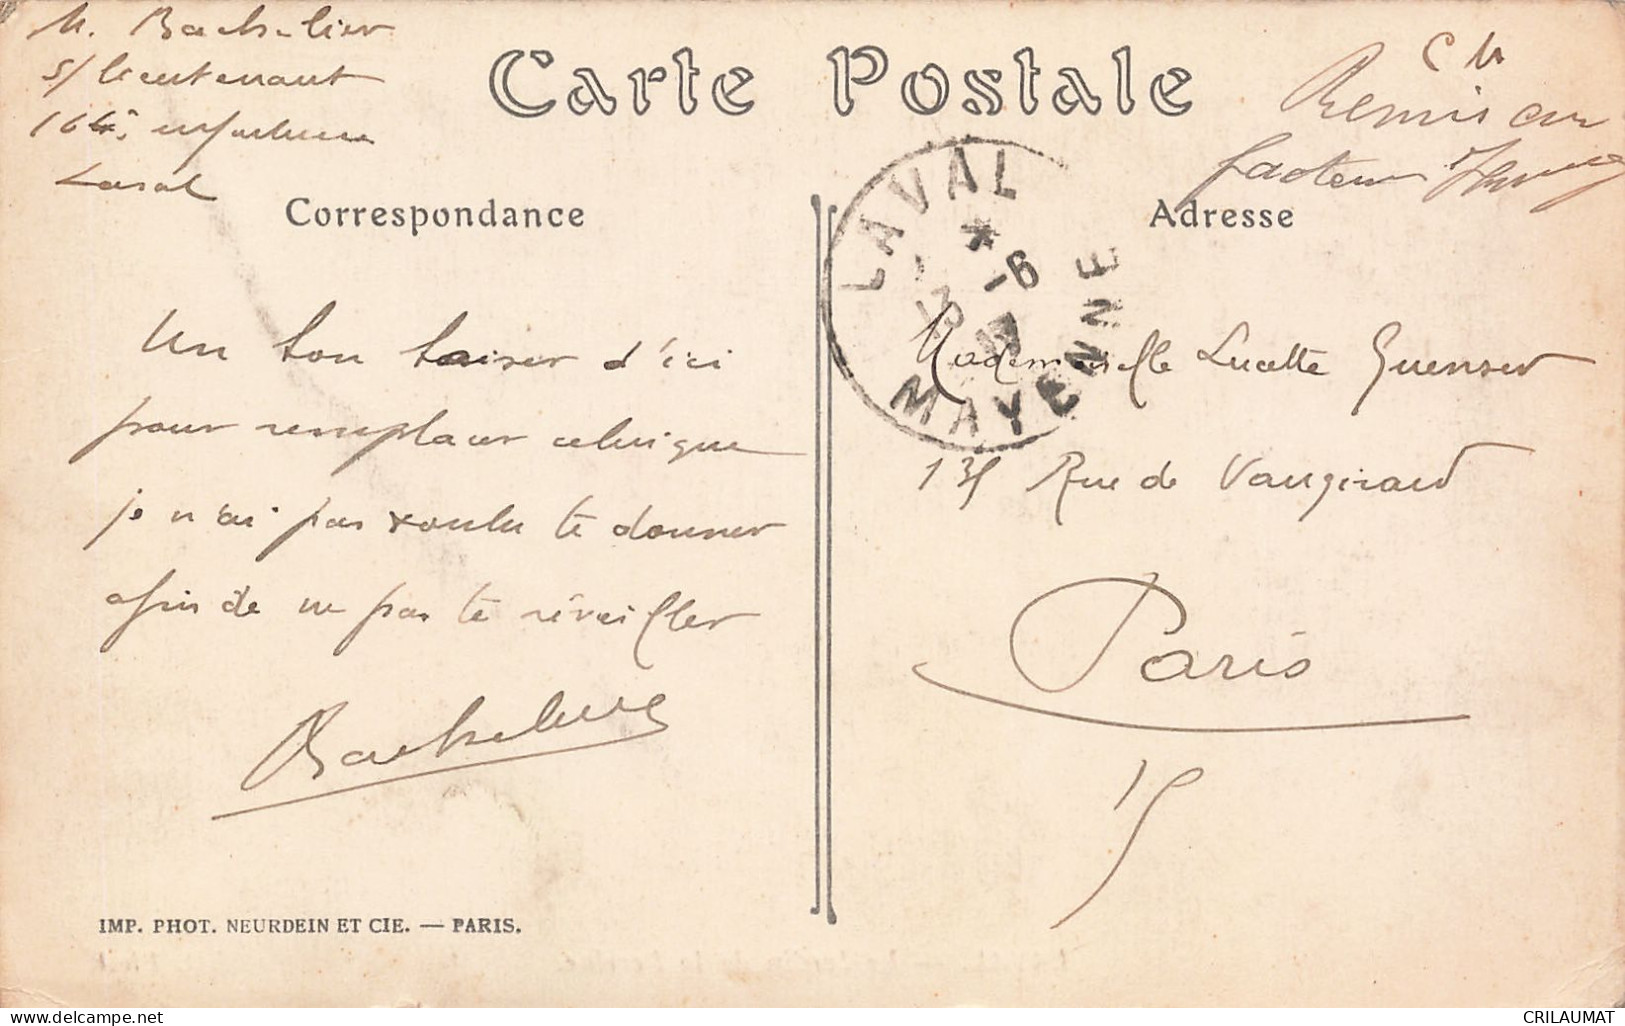 M. Bachelier
s/ lieutenant
104e infanterie
Laval
Carte Postale
C M
Remis au
facteur
Correspondance
Adresse
LAVAL
*
13 -6
MAYENNE
Un bon baiser d'ici
pour remplacer celui que
je n'ai pas voulu te donner
afin de ne pas te réveiller
Bachelier
Mademoiselle Lucette Guenser
135 Rue de Vaugirard
Paris
15
IMP. PHOT. NEURDEIN ET CIE. — PARIS.
www.delcampe.net
CRILAUMAT